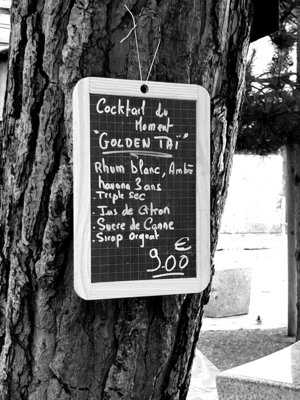 Cocktail du
Moment
"GOLDEN TAÏ"
Rhum blanc, Ambré
havana 3 ans
. Triple sec
. Jus de Citron
. Sucre de Canne
. Sirop Orgeat
€
9.00